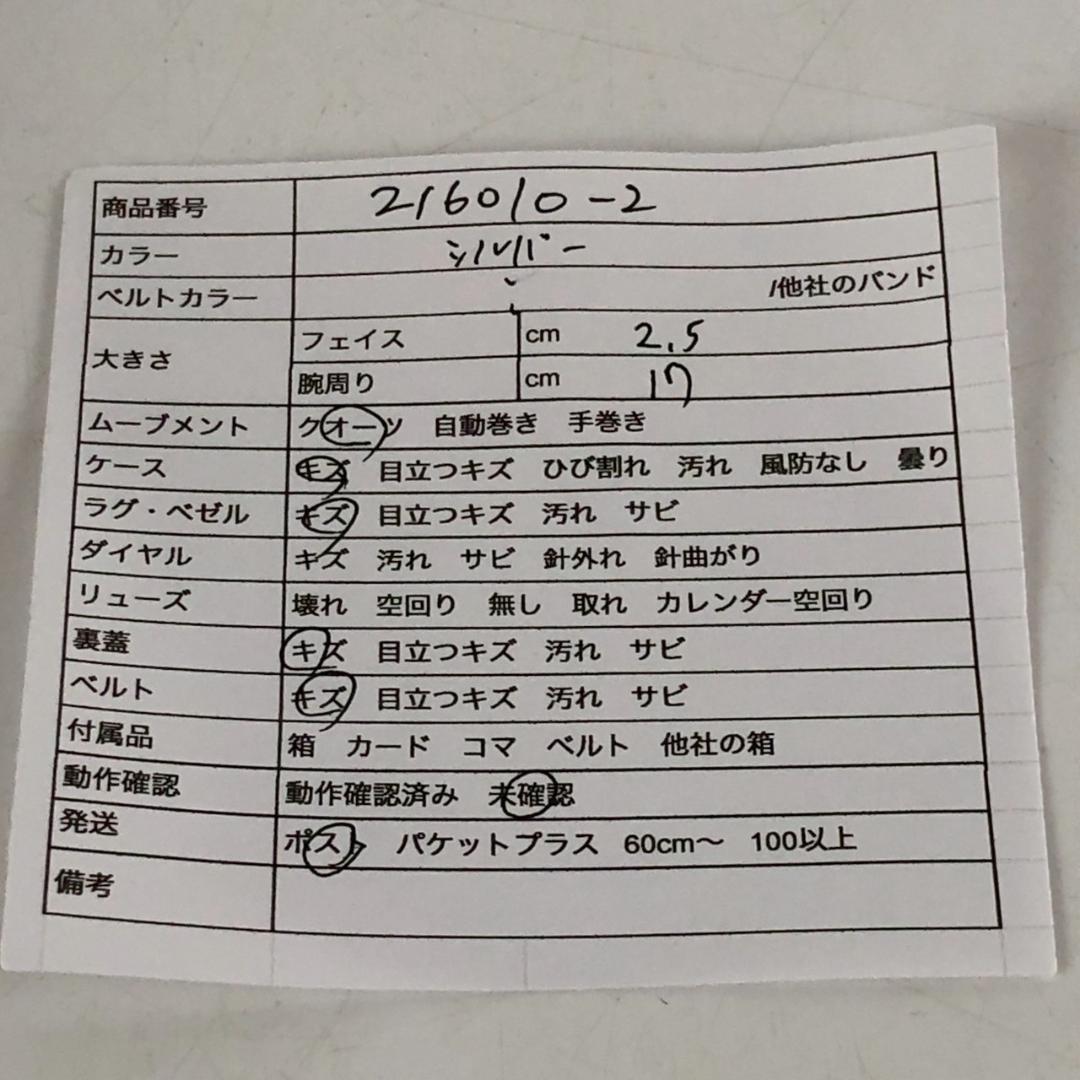 商品番号 216010-2
カラー シルバー
ベルトカラー /他社のバンド
大きさ フェイス cm 2.5
腕周り cm 17
ムーブメント クオーツ 自動巻き 手巻き
ケース キズ 目立つキズ ひび割れ 汚れ 風防なし 曇り
ラグ・ベゼル キズ 目立つキズ 汚れ サビ
ダイヤル キズ 汚れ サビ 針外れ 針曲がり
リューズ 壊れ 空回り 無し 取れ カレンダー空回り
裏蓋 キズ 目立つキズ 汚れ サビ
ベルト キズ 目立つキズ 汚れ サビ
付属品 箱 カード コマ ベルト 他社の箱
動作確認 動作確認済み 未確認
発送 ポスト パケットプラス 60cm〜 100以上
備考